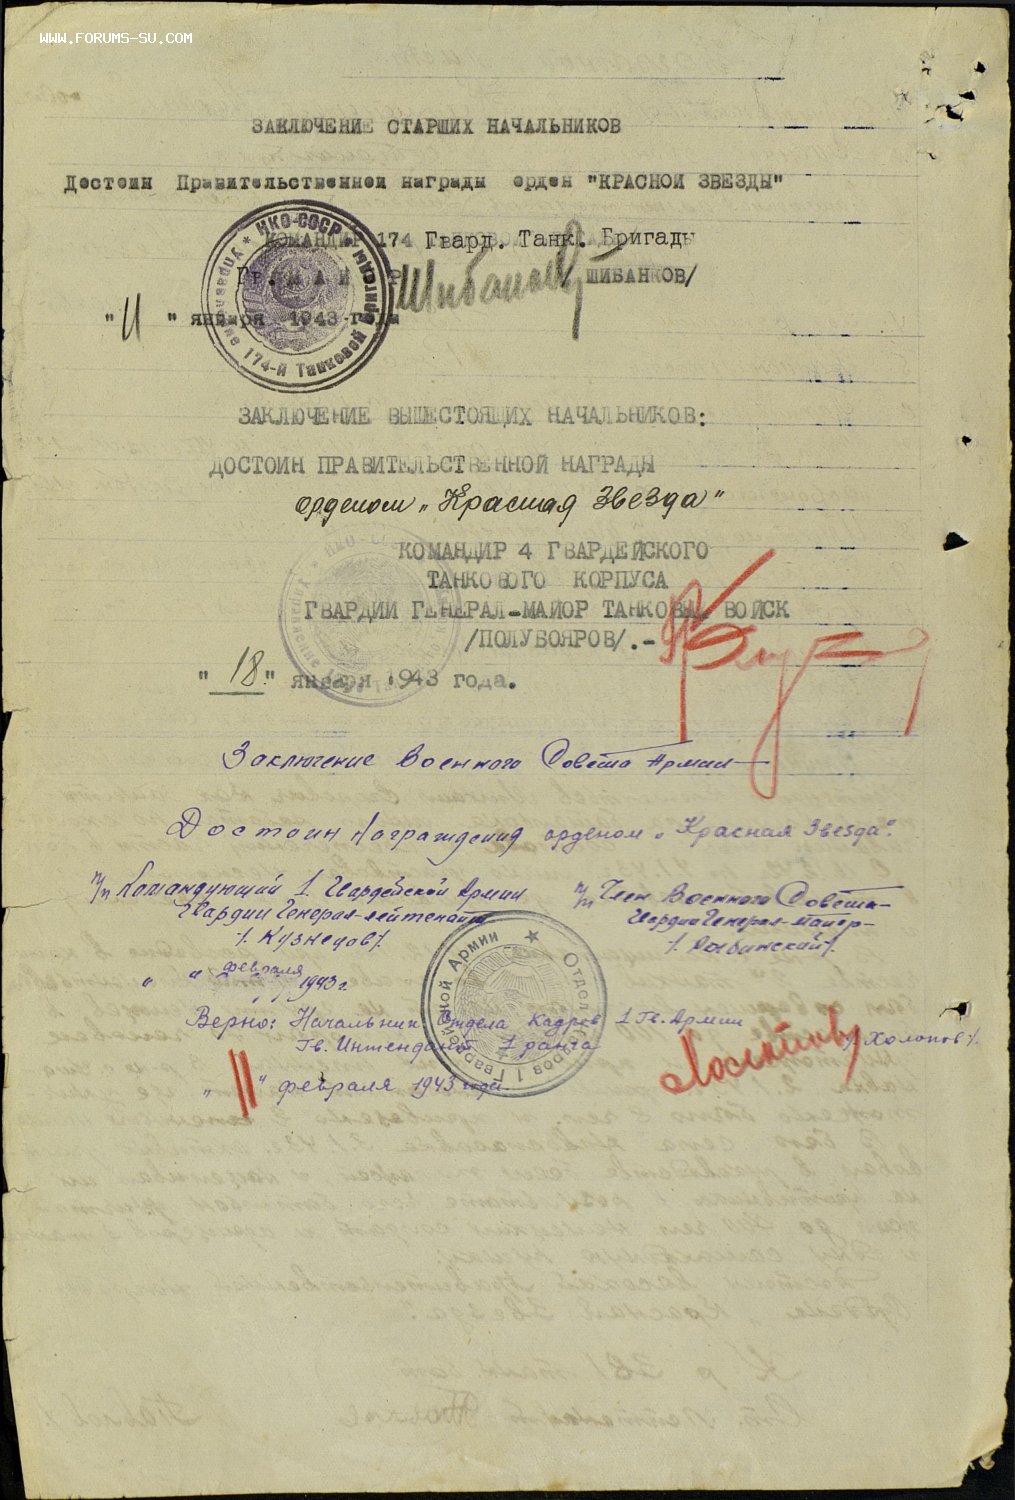 WWW.FORUMS-SU.COM
ЗАКЛЮЧЕНИЕ СТАРШИХ НАЧАЛЬНИКОВ
Достоин Правительственной награды орден "КРАСНОЙ ЗВЕЗДЫ"
КОМАНДИР 174 Гвард. Танк. Бригады
Гв. МАЙОР Шибанков ШИБАНКОВ/
"11" января 1943 года
НКО-СССР
Управление 174-й Танковой Бригады
ЗАКЛЮЧЕНИЕ ВЫШЕСТОЯЩИХ НАЧАЛЬНИКОВ:
ДОСТОИН ПРАВИТЕЛЬСТВЕННОЙ НАГРАДЫ
орденом „Красная Звезда"
КОМАНДИР 4 ГВАРДЕЙСКОГО
ТАНКОВОГО КОРПУСА
ГВАРДИИ ГЕНЕРАЛ-МАЙОР ТАНКОВЫХ ВОЙСК
/ПОЛУБОЯРОВ/.-
"18" января 1943 года.
Заключение Военного Совета Армии
Достоин награждения орденом „Красная Звезда".
п/п Командующий 1 Гвардейской Армии
Гвардии Генерал-лейтенант
/. Кузнецов/.
„ " февраля 1943 г.
п/п Член Военного Совета
Гвардии Генерал-майор
Верно: Начальник отдела кадров 1 Гв. Армии
Гв. Интендант 1 ранга /Холопов/.
„11" февраля 1943 года
Отдел кадров 1 Гвардейской Армии